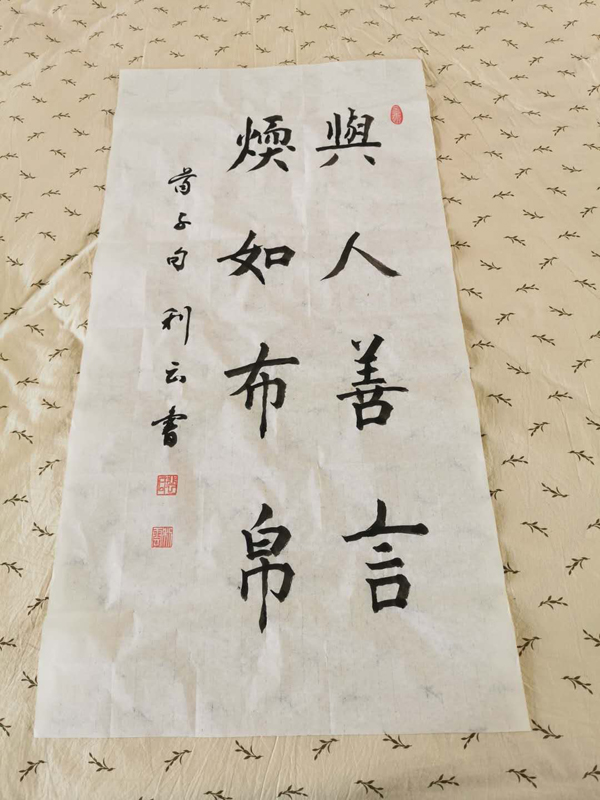 與人善言
煗如布帛
荀子句 利云書